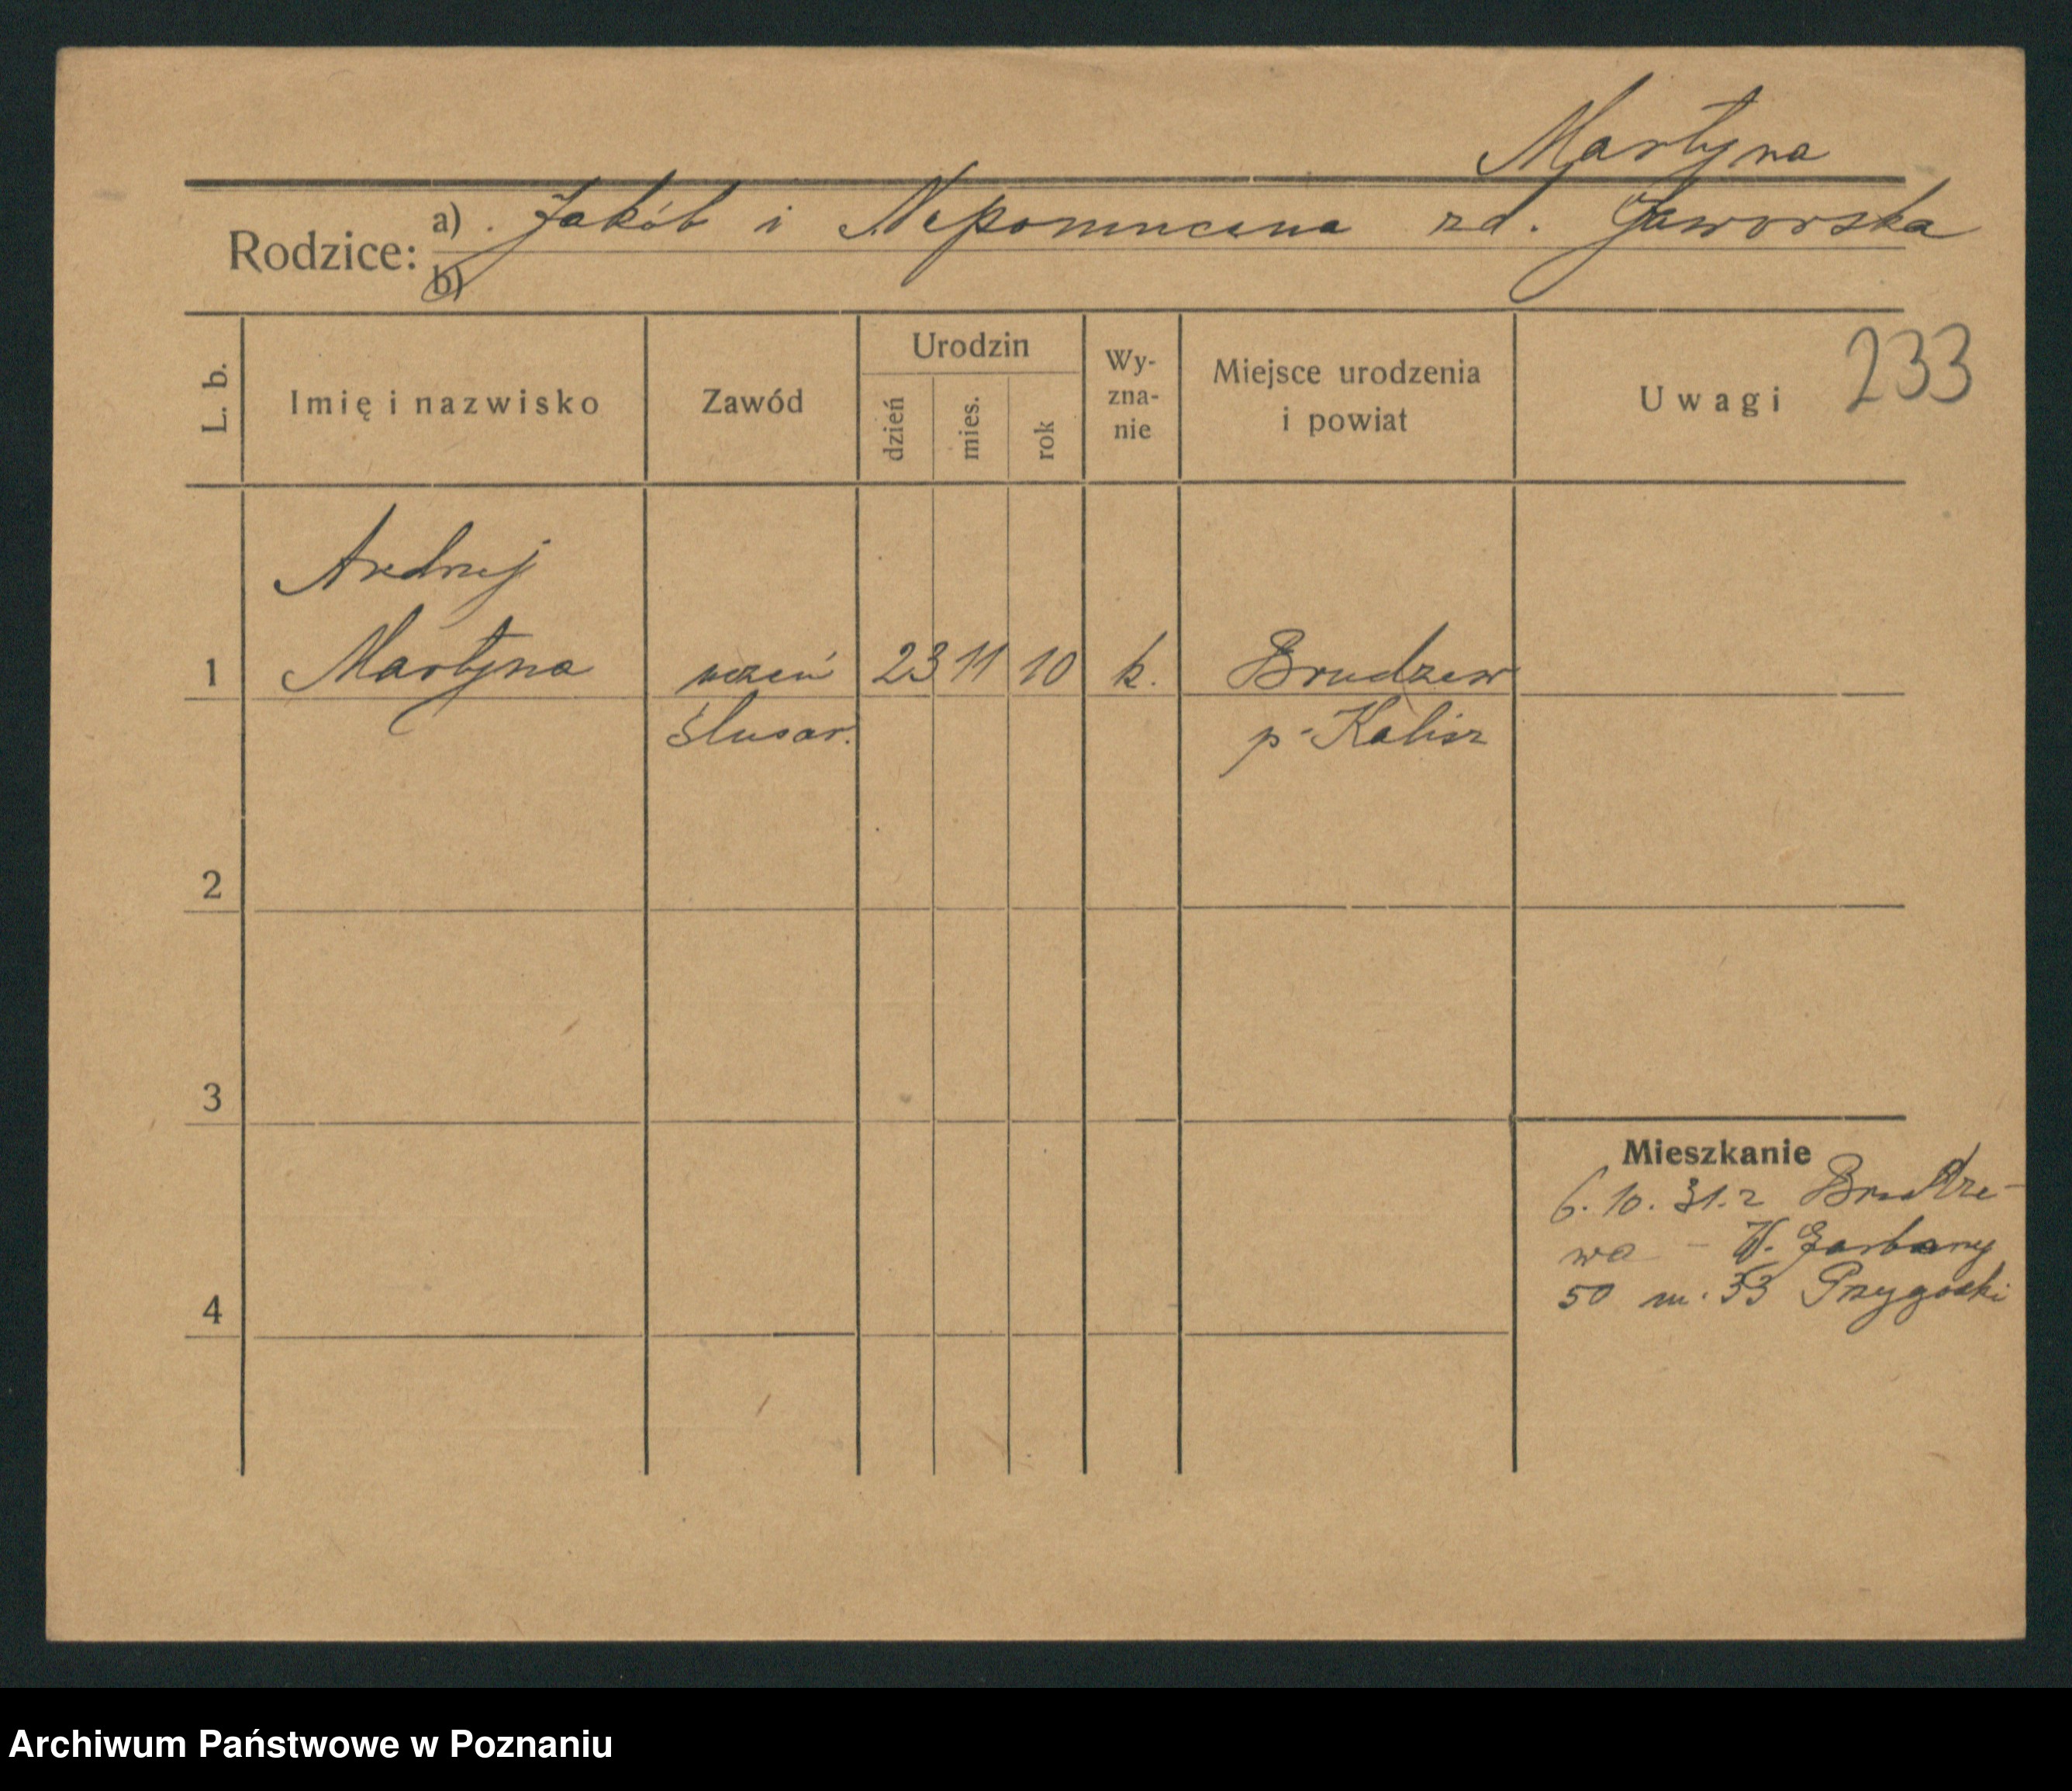 Martyna
Rodzice: a) Jakób i Nepomucena zd. Jaworska
b)
L. b.
Imię i nazwisko
Zawód
Urodzin
dzień
mies.
rok
Wy-
zna-
nie
Miejsce urodzenia
i powiat
Uwagi
233
Andrzej
1 Martyna uczeń 23 11 10 k. Brudzew
ślusar. p. Kalisz
2
3
Mieszkanie
6. 10. 31. z Brudze-
wa - W. Garbary
50 m. 33 Przygocki
4
Archiwum Państwowe w Poznaniu